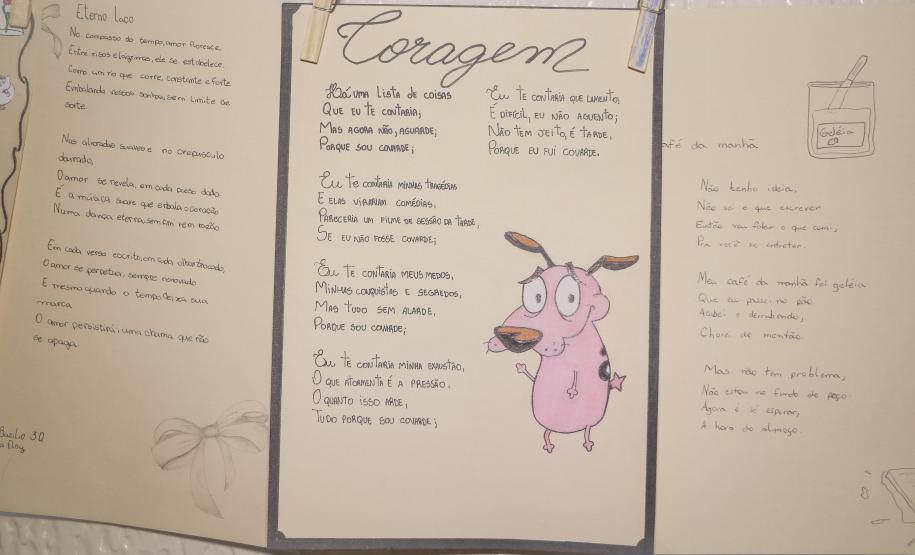 Eterno laço
No compasso do tempo, amor floresce.
Entre risos e lágrimas, ele se estabelece.
Como um rio que corre, constante e forte
Embalando nossos sonhos, sem limite de
sorte.
Nas alvoradas suaves e no crepúsculo
dourado,
O amor se revela, em cada passo dado.
É a música suave que embala o coração
Numa dança eterna, sem fim nem razão
Em cada verso escrito, em cada olhar trocado,
O amor se perpetua, sempre renovado
E mesmo quando o tempo deixa sua
marca
O amor persistirá, uma chama que não
se apaga.
Basilio 3Q
Eloy
Coragem
Há uma lista de coisas
Que eu te contaria;
Mas agora não, aguarde;
Porque sou covarde;
Eu te contaria minhas tragédias
E elas virariam comédias,
Pareceria um filme de sessão da tarde,
Se eu não fosse covarde;
Eu te contaria meus medos,
Minhas conquistas e segredos,
Mas tudo sem alarde,
Porque sou covarde;
Eu te contaria minha exaustão,
O que atormenta é a pressão.
O quanto isso arde,
Tudo porque sou covarde;
Eu te contaria que lamento,
É difícil, eu não aguento;
Não tem jeito, é tarde,
Porque eu fui covarde.
afé da manhã
Geléia
Não tenho ideia,
Não sei o que escrever
Então vou falar o que comi,
Pra você se entreter.
Meu café da manhã foi geléia
Que eu passei no pão
Acabei o derrubando,
Chorei de montão.
Mas não tem problema,
Não estou no fundo do poço
Agora é só esperar,
A hora do almoço.